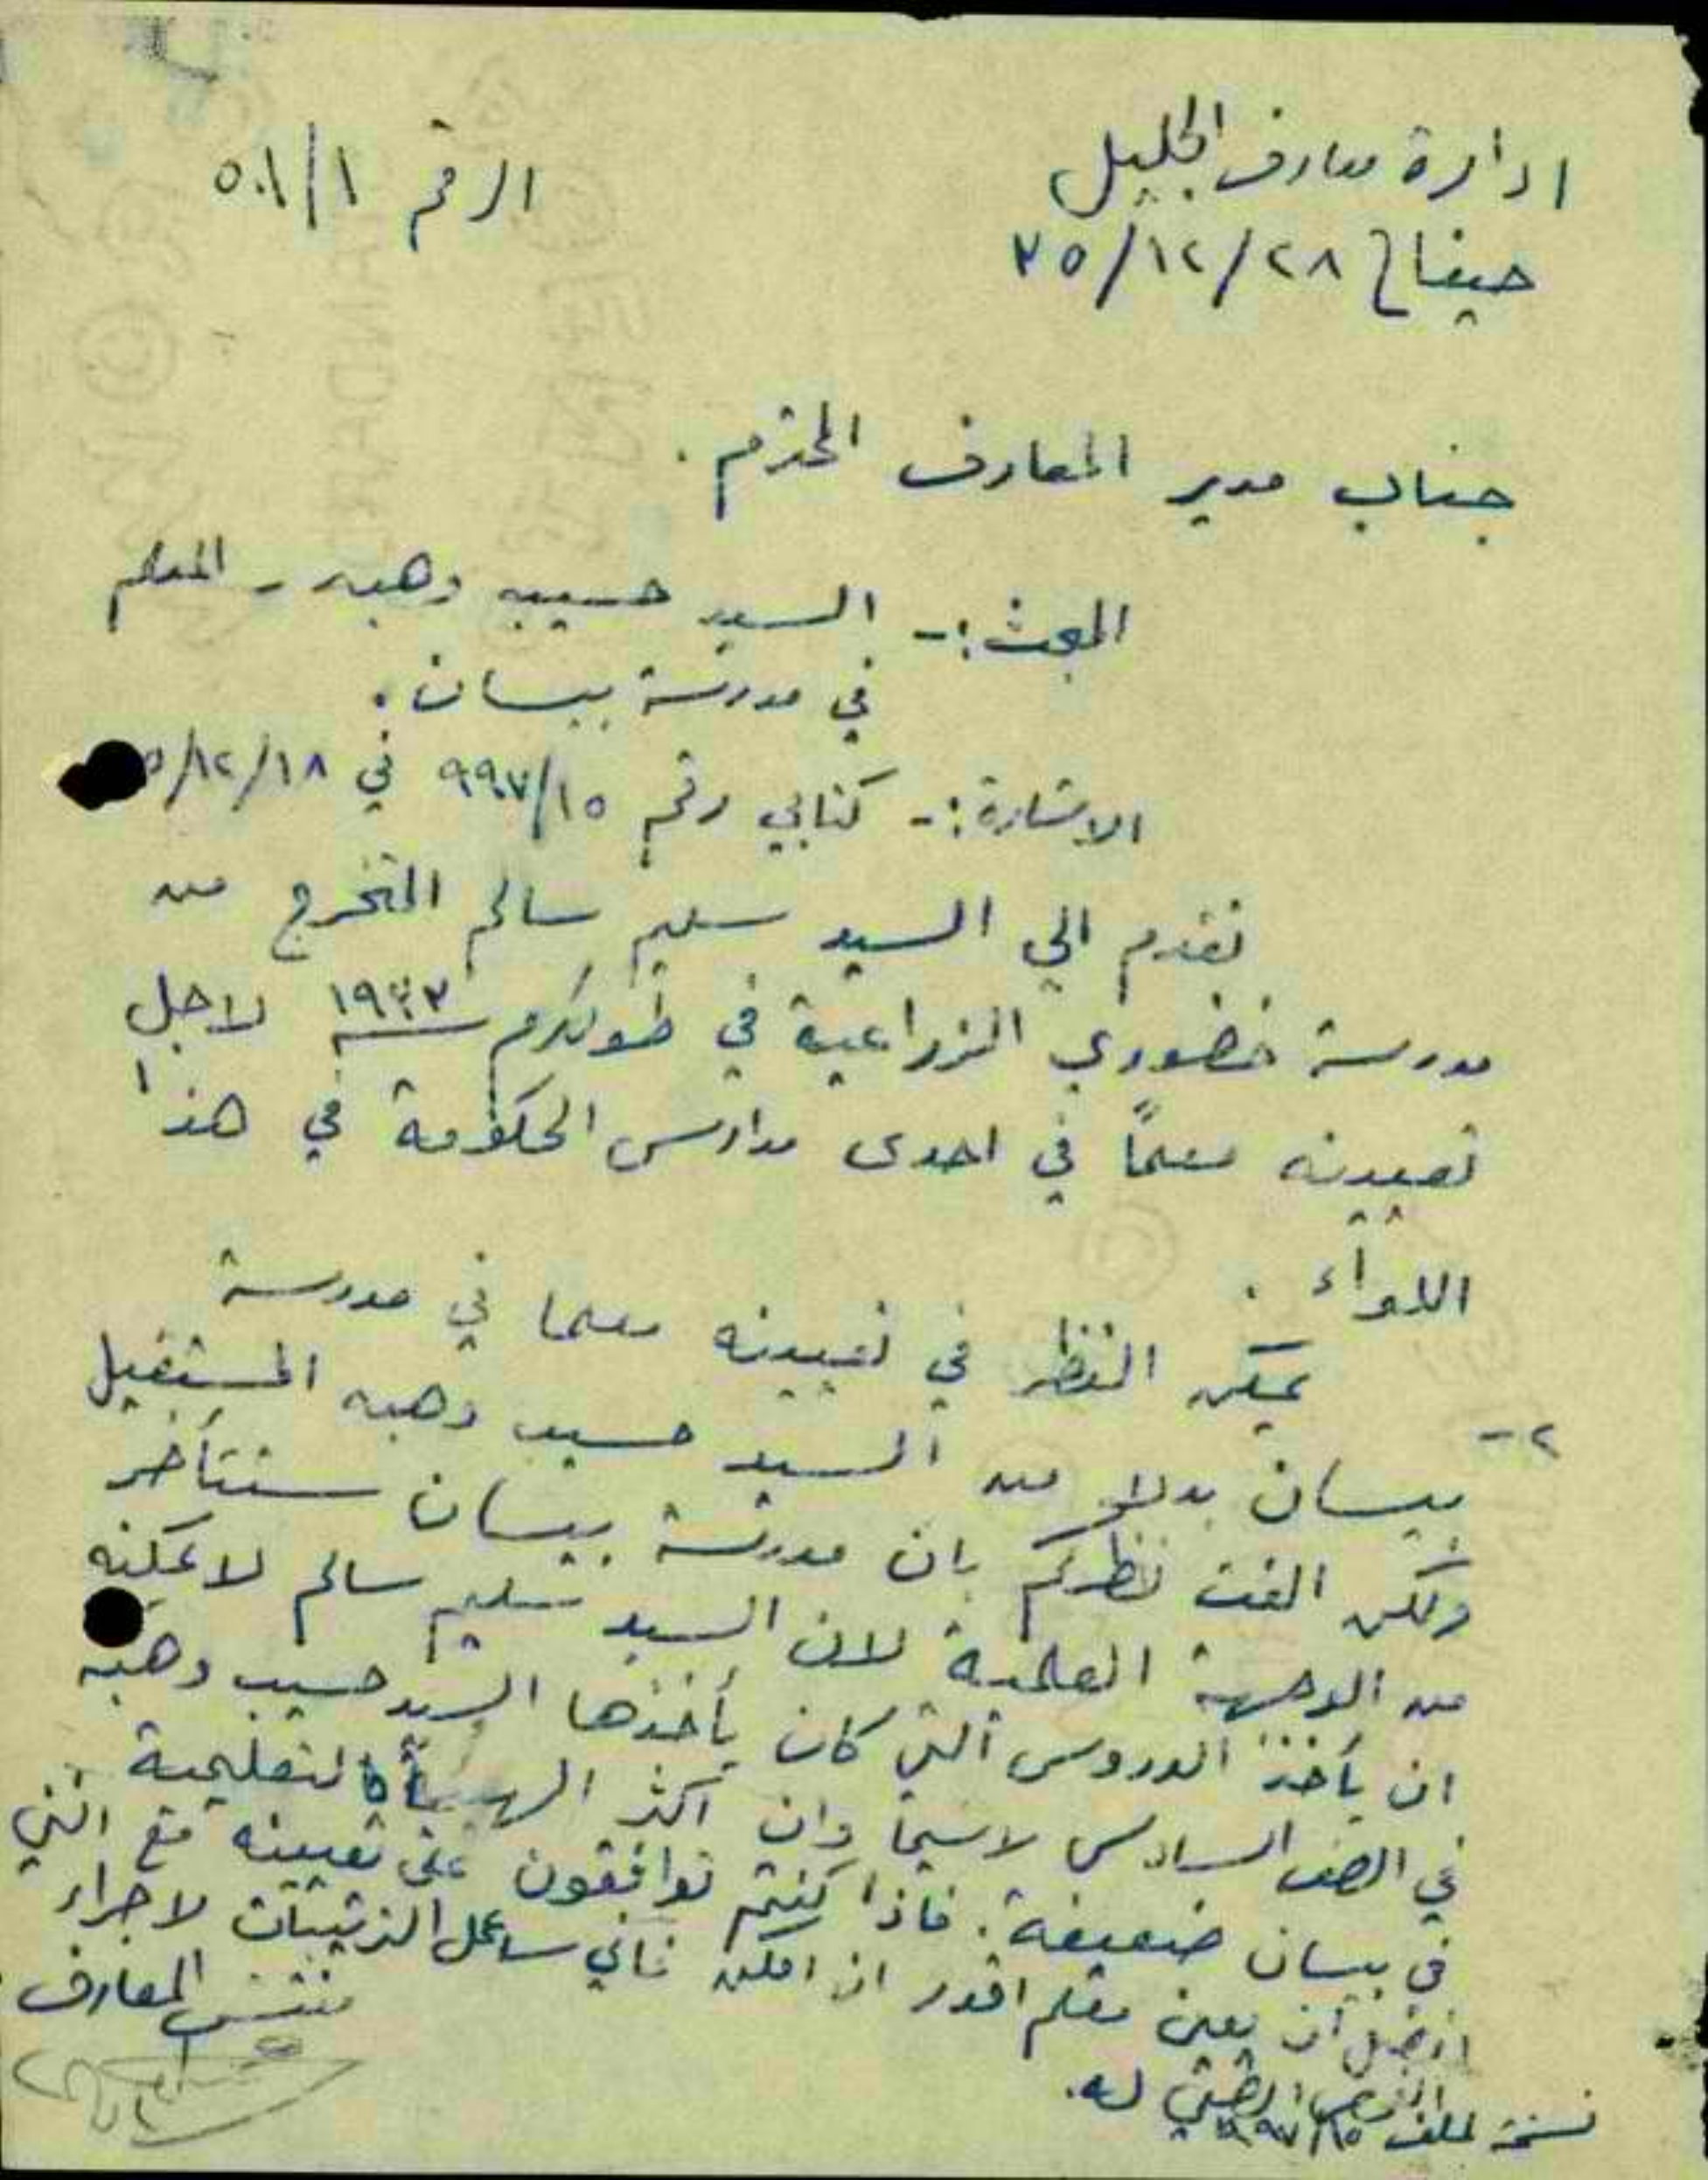 ادارة معارف الجليل
الرقم ٥٠١/١
حيفا في ٣٥/١٢/٢٨
جناب مدير المعارف المحترم .
المبحث :- السيد حسيب وهبه - المعلم
في مدرسة بيسان .
الاشارة :- كتابي رقم ٩٩٧/١٥ في ٥/١٢/١٨
تقدم الي السيد سليم سالم المتخرج من
مدرسة خضوري الزراعية في طولكرم سنة لاجل
تعيينه معلماً في احدى مدارس الحكومة في هذا
اللواء .
٢- يمكن النظر في تعيينه معلما في مدرسة
بيسان بدلا من السيد حسيب وهبه المستقيل
ولكن الفت نظركم بان مدرسة بيسان ستتأخر
من الوجهة العلمية لان السيد سليم سالم لا يمكنه
ان يأخذ الدروس التي كان يأخذها السيد حسيب وهبه
في الصف السادس لاسيما وان اكثر الهيأة التعليمية
في بيسان ضعيفة . فاذا كنتم توافقون على تعيينه مع انني
افضل ان يعين معلم اقدر ان امكن فاني ساعمل الترتيبات لاجراء
الفحص الطبي له .
مفتش المعارف
نسخة لملف ٩٩٧/١٥